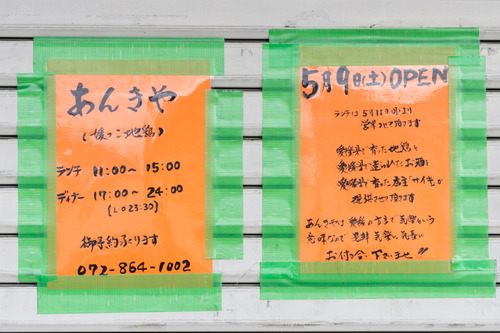 あんきや
(媛っこ地鶏)
ランチ 11:00～15:00
ディナー 17:00～24:00
(L.O 23:30)
御予約承ります
072-864-1002
5月9日(土)OPEN
ランチは5月11日(月)より
営業させて頂きます
愛媛県で育った地鶏と
愛媛県で造られたお酒を
愛媛県で育った店主「サイキ」が
提供させて頂きます
あんきやは愛媛の方言で気楽という
意味なので是非気楽に気長に
お付き合い下さいませ!!!